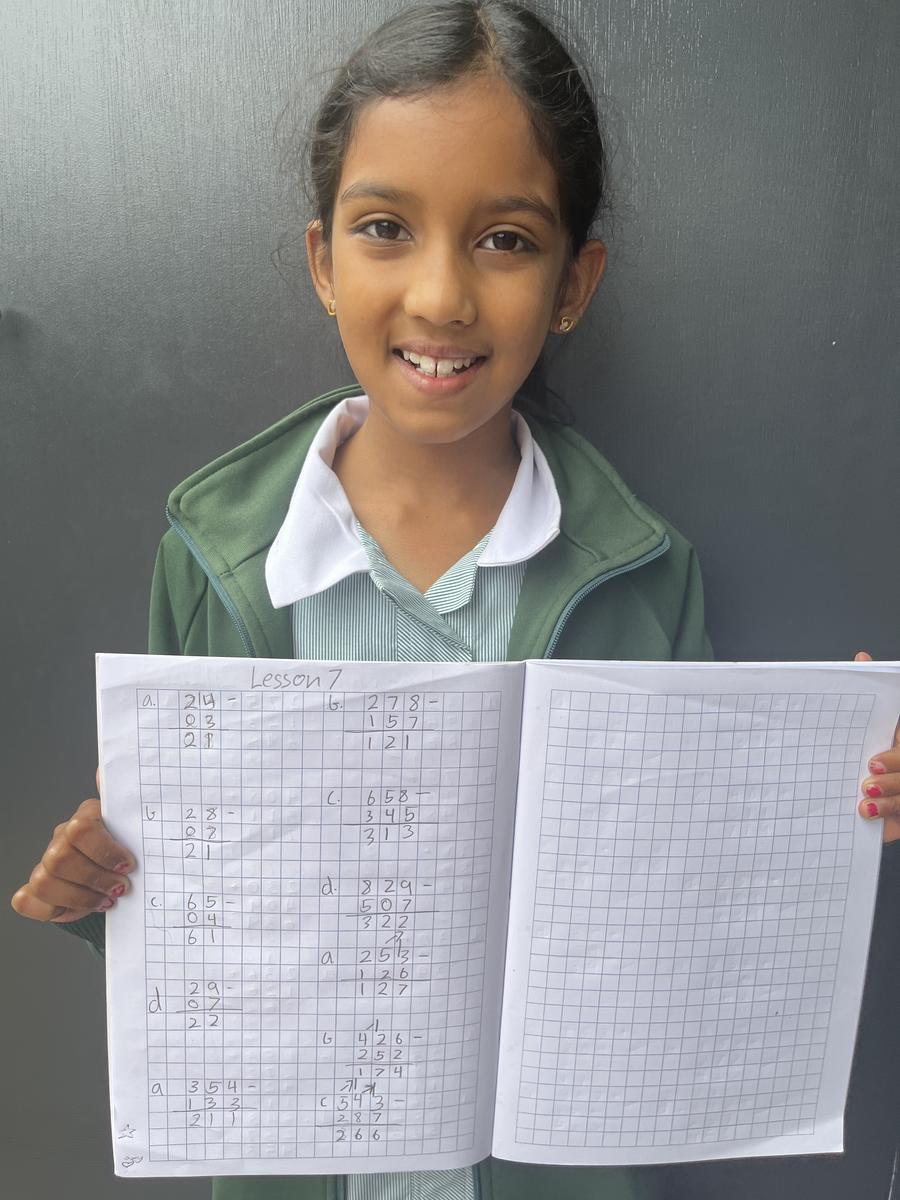 Lesson 7
a. 24 -
03
21
b 28 -
07
21
c. 65 -
04
61
d 29 -
07
22
a 354 -
133
211
b. 278 -
157
121
c. 658 -
345
313
d. 829 -
507
322
a 253 -
126
127
b 426 -
252
174
c 543 -
287
266